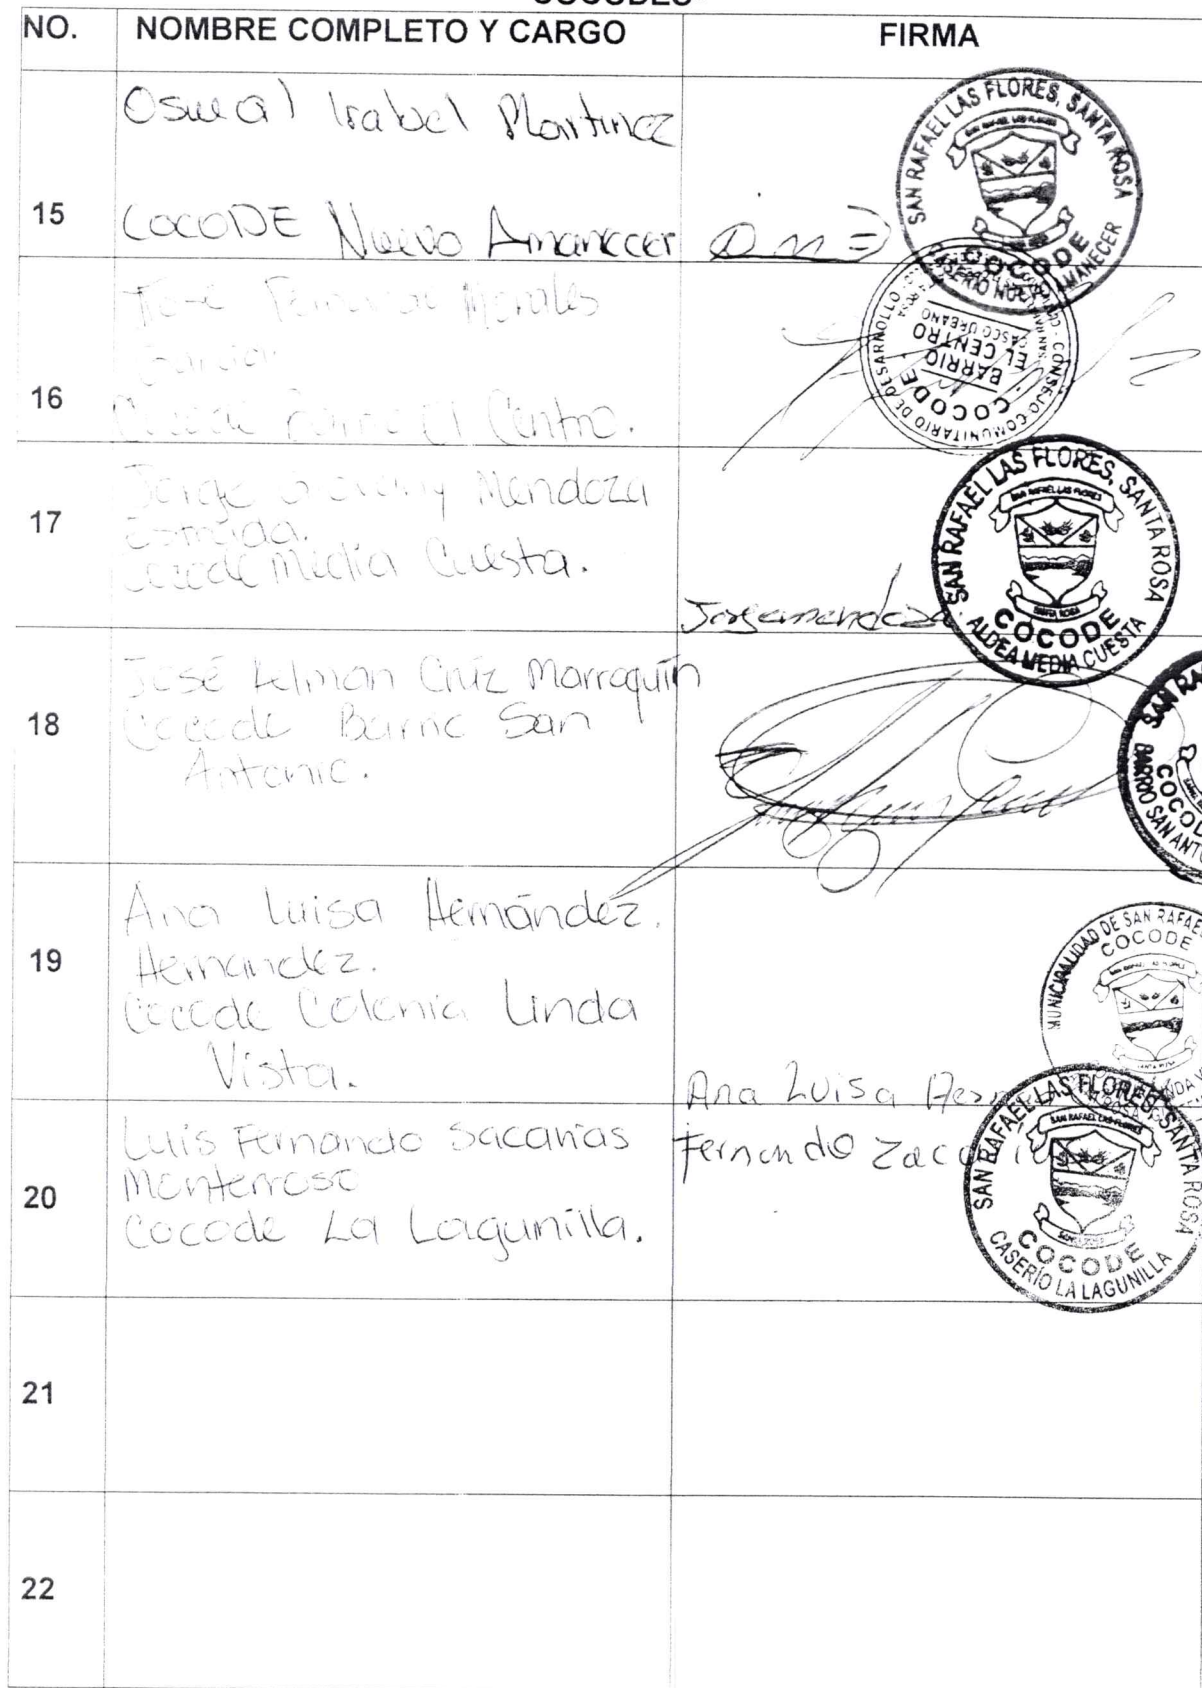 COCODES
NO. NOMBRE COMPLETO Y CARGO FIRMA
Isabel Martinez
15 COCODE Nuevo Amanecer
SAN RAFAEL LAS FLORES, SANTA ROSA
SAN RAFAEL LAS FLORES
COCODE
CASERIO NUEVO AMANECER
José Morales
16
Cocode Barrio El Centro.
CONSEJO COMUNITARIO DE DESARROLLO
COCODE
BARRIO
EL CENTRO
CASCO URBANO
Jorge Mendoza
17 Estrada.
Cocode Media Cuesta.
Jorge mendoza
SAN RAFAEL LAS FLORES, SANTA ROSA
SAN RAFAEL LAS FLORES
SANTA ROSA
COCODE
ALDEA MEDIA CUESTA
José Cruz Marroquín
18 Cocode Barrio San
Antonio.
SAN RA
COCOD
BARRIO SAN ANTO
Ana Luisa Hernández.
19 Hernandez.
Cocode Colonia Linda
Vista.
Ana Luisa Her
MUNICIPALIDAD DE SAN RAFAEL
COCODE
Luis Fernando Sacarias
Monterroso
20 Cocode La Lagunilla.
Fernando Zacari
SAN RAFAEL LAS FLORES, SANTA ROSA
SAN RAFAEL LAS FLORES
COCODE
CASERÍO LA LAGUNILLA
21
22